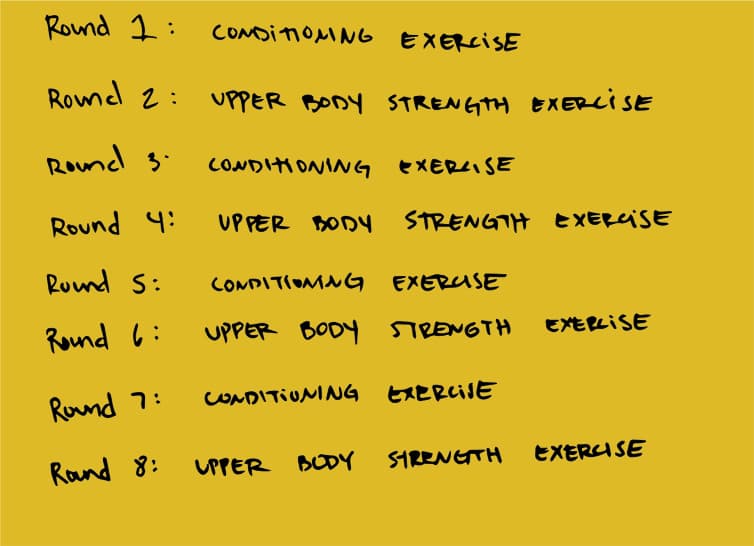 Round 1: CONDITIONING EXERCISE
Round 2: UPPER BODY STRENGTH EXERCISE
Round 3: CONDITIONING EXERCISE
Round 4: UPPER BODY STRENGTH EXERCISE
Round 5: CONDITIONING EXERCISE
Round 6: UPPER BODY STRENGTH EXERCISE
Round 7: CONDITIONING EXERCISE
Round 8: UPPER BODY STRENGTH EXERCISE